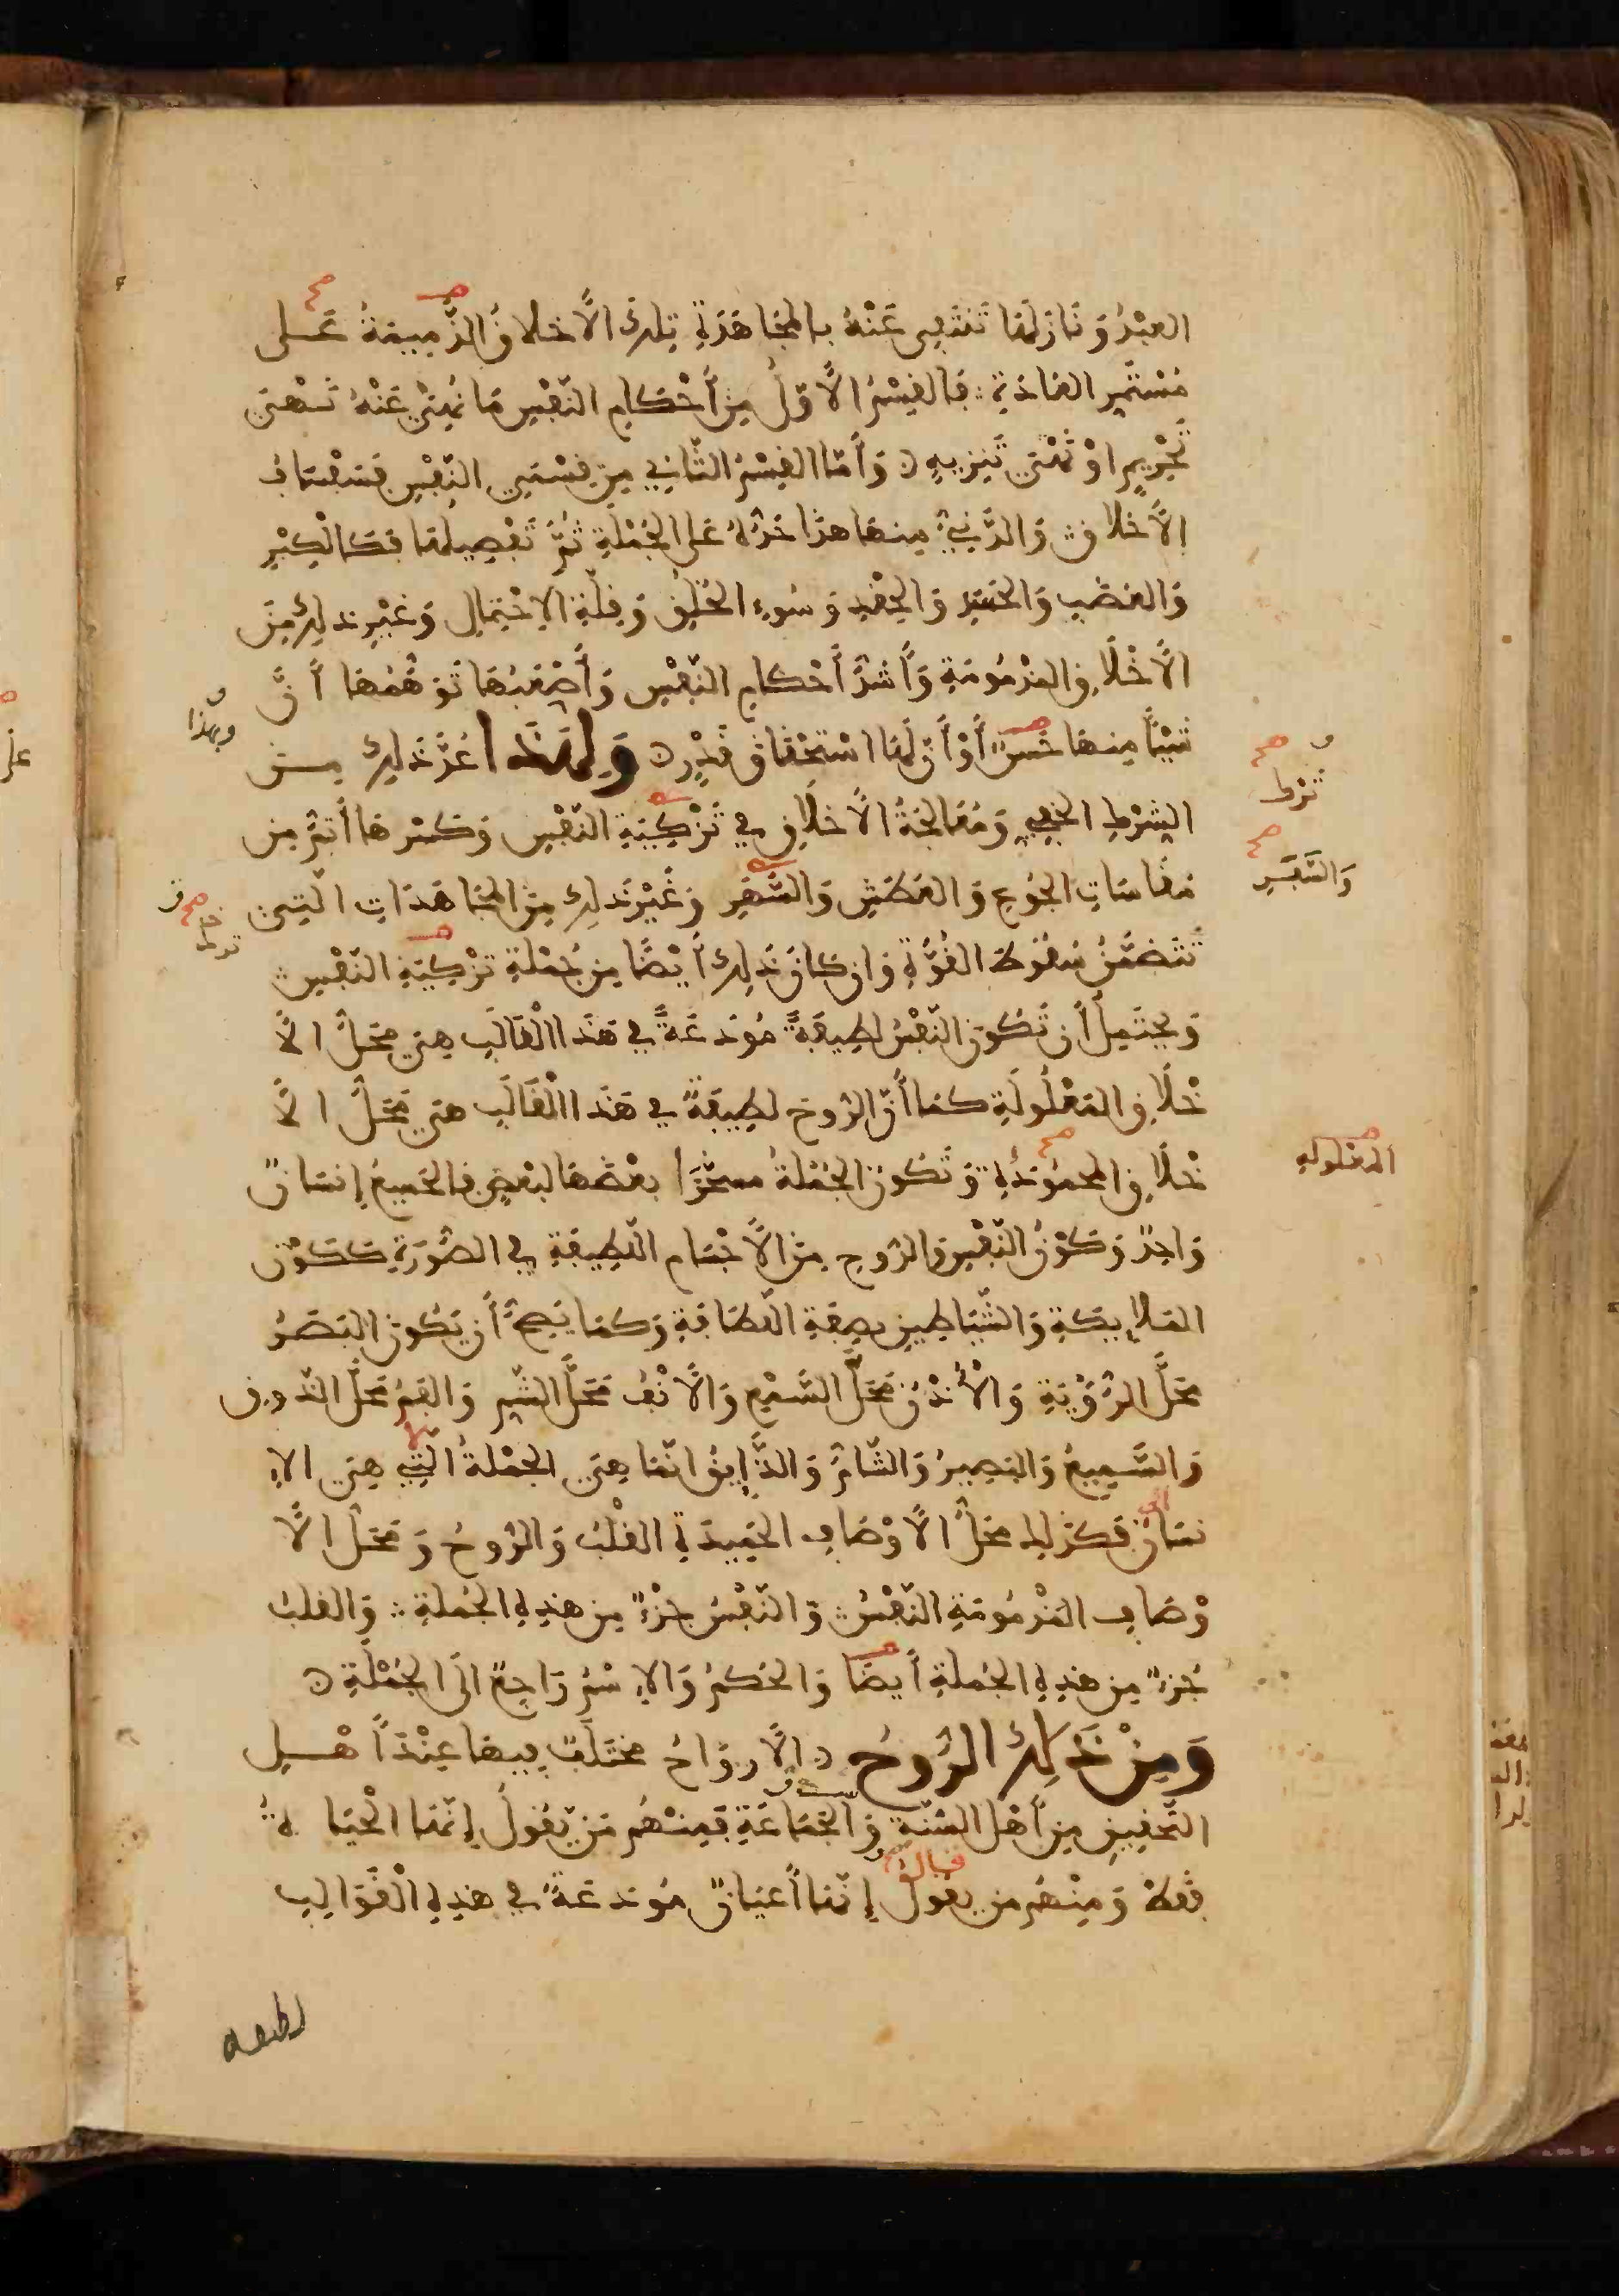 العَبْدُ وَنَازَلَهَا تَنْتَفِي عَنْهُ بِالْمُجَاهَدَةِ تِلْكَ الأَخْلَاقُ الذَّمِيمَةُ عَلى
مُسْتَمِرِّ العَادَةِ فَالقِسْمُ الأَوَّلُ مِنْ أَحْكَامِ النَّفْسِ مَا نُهِيَ عَنْهُ نَهْيَ
تَحْرِيمٍ اوْ نَهْيَ تَنْزِيهٍ وَأَمَّا القِسْمُ الثَّانِي مِنْ قِسْمَيِ النَّفْسِ فَسَفْسَافُ
الأَخْلَاقِ وَالدَّنِيُّ مِنهَا هذَا حَدُّهُ عَلَى الجُمْلَةِ ثُمَّ تَفْصِيلُهَا فَكَالْكِبْرِ
وَالغَضَبِ وَالحَسَدِ وَالحِقْدِ وَسُوءِ الخُلُقِ وَقِلَّةِ الاِحْتِمَالِ وَغَيْرِ ذلِكَ مِنَ
الأَخْلَاقِ المَذْمُومَةِ وَأَشَدُّ أَحْكَامِ النَّفْسِ وَأَصْعَبُهَا تَوَهُّمُهَا أَنَّ
شَيْئًا مِنهَا حَسَنٌ أَوْ أَنَّ لَهَا اسْتِحْقَاقَ قَدْرٍ وَلِهَذَا عُدَّ ذَلِكَ مِنَ
الشِّرْكِ الخَفِيِّ وَمُعَالَجَةُ الأَخْلَاقِ فِي تَزْكِيَةِ النَّفْسِ وَكَسْرِهَا أَتَمُّ مِن
مُقَاسَاتِ الجُوعِ وَالعَطَشِ وَالسَّهَرِ وَغَيْرِ ذَلِكَ مِنَ المُجَاهَدَاتِ الَّتِي
تَتَضَمَّنُ سُقُوطَ القُوَّةِ وَان كَانَ ذَلِكَ أَيْضًا مِن جُمْلَةِ تَزْكِيَةِ النَّفْسِ
وَيَحْتَمِلُ أَن تَكُونَ النَّفْسُ لَطِيفَةً مُودَعَةً فِي هَذَا الْقَالَبِ هِيَ مَحَلُّ الأَ
خْلَاقِ المَعْلُولَةِ كَمَا أَنَّ الرُّوحَ لَطِيفَةٌ فِي هَذَا الْقَالَبِ هِيَ مَحَلُّ الأَ
خْلَاقِ المَحْمُودَةِ وَتَكُونَ الجُمْلَةُ مسَخَّرًا بَعْضُهَا لِبَعْضٍ فَالجَمِيعُ إِنسَانٌ
وَاحِدٌ وَكَوْنُ النَّفْسِ وَالرُّوحِ مِنَ الأَجْسَامِ اللَّطِيفَةِ فِي الصُّورَةِ كَكَوْنِ
المَلَائِكَةِ وَالشَّيَاطِينِ بِصِفَةِ اللَّطَافَةِ وَكَمَا يَصِحُّ أَن يَكُونَ البَصَرُ
مَحَلَّ الرُّؤْيَةِ وَالأُذْنُ مَحَلَّ السَّمْعِ وَالأَنْفُ مَحَلَّ الشَّمِّ وَالفَمُ مَحَلَّ الذَّوقِ
وَالسَّمِيعُ وَالبَصِيرُ وَالشَّامُّ وَالذَّائِقُ انَّمَا هِيَ الجُمْلَةُ الَّتِي هِيَ الاِ
نسَانُ فَكَذلِكَ مَحَلُّ الأَوْصَافِ الحَمِيدَةِ القَلْبُ وَالرُّوحُ وَمَحَلُّ الأَ
وْصَافِ المَذْمُومَةِ النَّفْسُ وَالنَّفْسُ جُزْءٌ مِن هَذِهِ الجُمْلَةِ وَالقَلْبُ
جُزْءٌ مِن هَذِهِ الجُمْلَةِ أَيضًا وَالحُكْمُ وَالاِسْمُ رَاجِعٌ الَى الجُمْلَةِ
وَمِنْ ذَلِكَ الرُّوحُ الأَروَاحُ مختَلَفٌ فِيهَا عِنْدَ أَهْلِ
التَّحْقِيقِ مِنْ أَهْلِ السُّنَّةِ وَالجَمَاعَةِ فَمِنْهُم مَن يَقُولُ إِنَّهَا الْحَيَاةُ
فَقَطْ وَمِنْهُم مَن يَقُولُ إِنَّهَا أَعْيَانٌ مُودَعَةٌ فِي هَذِهِ الْقَوَالِبِ
وبهذا
وَالسَّهَرِ
المعلوله
لطيفه